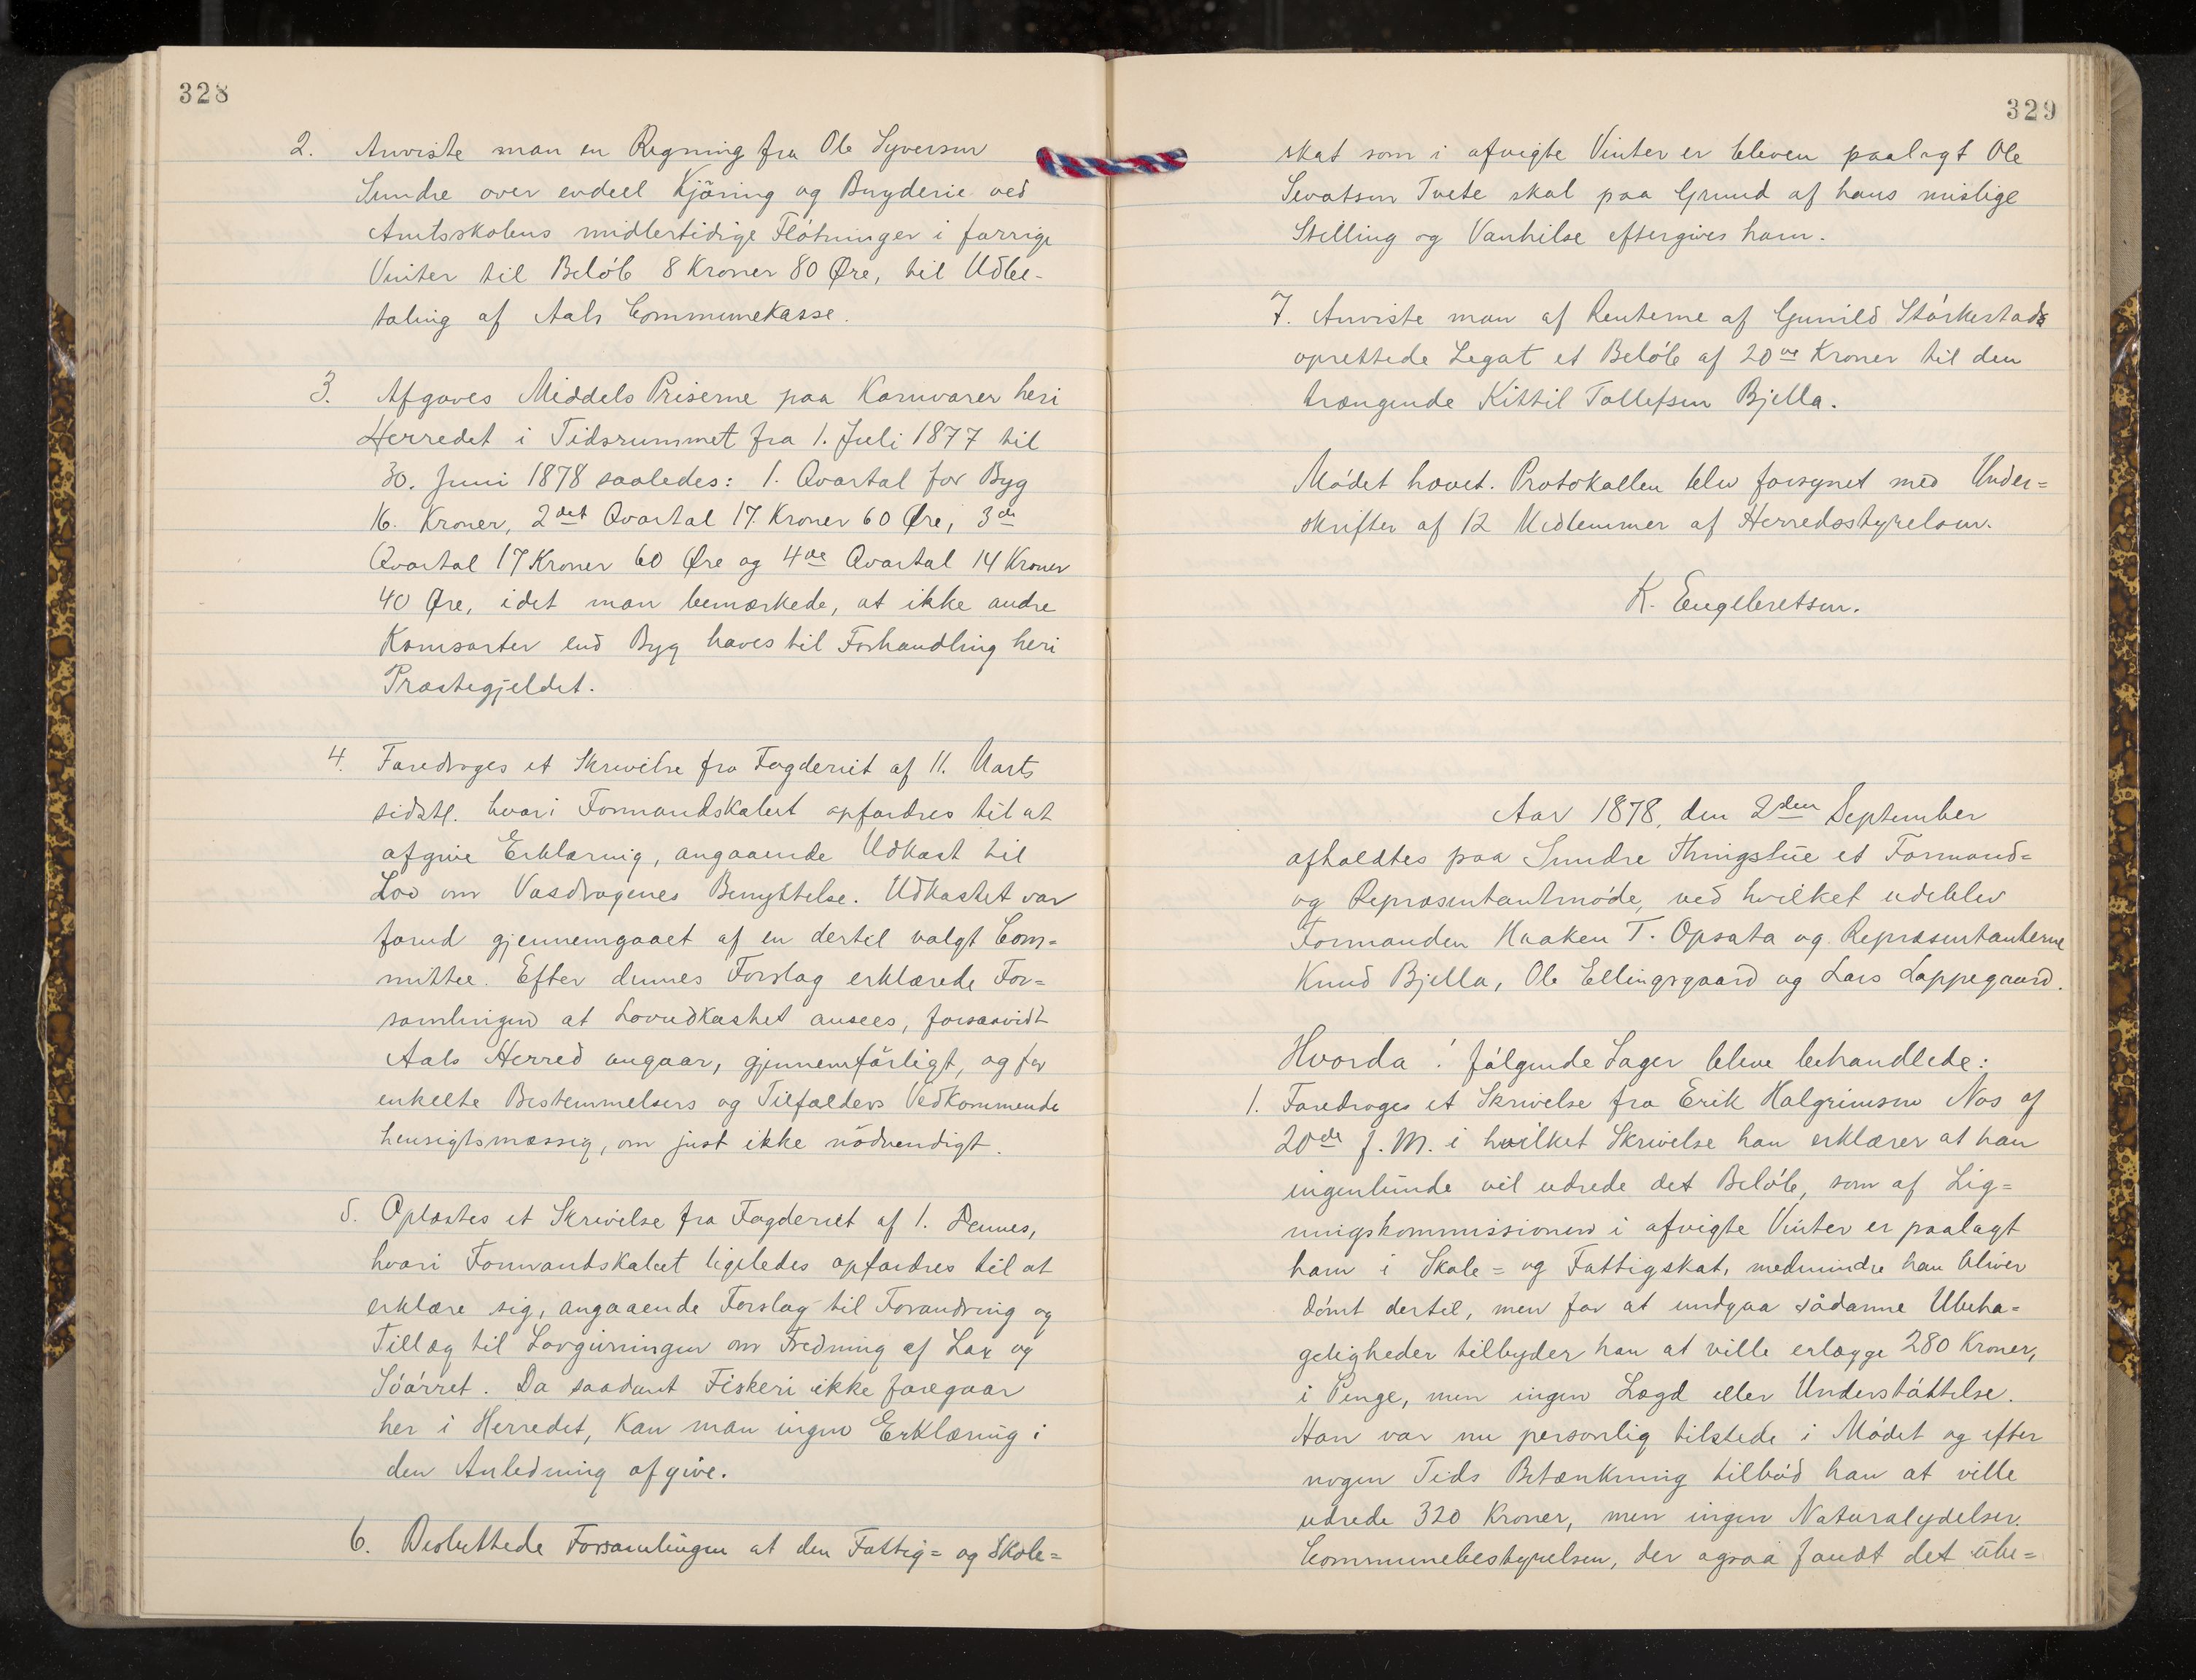 328
2. Anviste man en Regning fra Ole Syversen
Sundre over endeel Kjöring og Bryderie ved
Amtsskolens midlertidige Flötninger i forrige
Vinter til Belöb 8 Kroner 80 Øre, til Udbe-
taling af Aals Communekasse.
3. Afgaves Middels Priserne paa Kornvarer heri
Herredet i Tidsrummet fra 1. Juli 1877 til
30. Juni 1878 saaledes: 1. Qvartal for Byg
16. Kroner, 2det Qvartal 17. Kroner 60 Øre, 3de
Qvartal 17 Kroner 60 Øre og 4de Qvartal 14 Kroner
40 Øre, idet man bemærkede, at ikke andre
Kornsorter end Byg haves til Forhandling heri
Præstegjeldet.
4. Foredroges et Skrivelse fra Fogderiet af 11. Marts
sidstl. hvori Formandskabet opfordres til at
afgive Erklæring, angaaende Udkast til
Lov om Vasdragenes Benyttelse. Udkastet var
forud gjennemgaaet af en dertil valgt Com=
mittee. Efter dennes Forslag erklærede For=
samlingen at Lovudkastet ansees, forsaavidt
Aals Herred angaar, gjennemförligt, og for
enkelte Bestemmelsers og Tilfælders Vedkommende
hensigtsmæssig, om just ikke nödvendigt.
5. Oplæstes et Skrivelse fra Fogderiet af 1. Dennes,
hvori Formandskabet ligeledes opfordres til at
erklære sig, angaaende Forslag til Forandring og
Tillæg til Lovgivningen om Fredning af Lax og
Söörret. Da saadant Fiskeri ikke foregaar
her i Herredet, kan man ingen Erklæring i
den Anledning afgive.
6. Besluttede Forsamlingen at den Fattig= og Skole=
329
skat som i afvigte Vinter er bleven paalagt Ole
Sevatsen Tvete skal paa Grund af hans mislige
Stilling og Vanhilse eftergives ham.
7. Anviste man af Renterne af Gunild Störkestads
oprettede Legat et Belöb af 20ve Kroner til den
trængende Kittil Tollefsen Bjella.
Mödet hævet. Protokollen blev forsynet med Under=
skrifter af 12 Medlemmer af Herredsstyrelsen.
K. Engebretsen.
Aar 1878, den 2den September
afholdtes paa Sundre Thingstue et Formand=
og Repræsentantmöde, ved hvilket udeblev
Formanden Haaken T. Opsata og Repræsentanterne
Knud Bjella, Ole Ellingsgaard og Lars Lappegaard.
Hvorda ! fölgende Sager bleve behandlede:
1. Foredroges et Skrivelse fra Erik Halgrimsen Nos af
20de f. M. i hvilket Skrivelse han erklærer at han
ingenlunde vil udrede det Belöb, som af Lig=
ningskommissionen i afvigte Vinter er paalagt
ham i Skole= og Fattigskat, medmindre han bliver
dömt dertil, men for at undgaa sådanne Ubeha=
geligheder tilbyder han at ville erlægge 280 Kroner,
i Penge, men ingen Lægd eller Understöttelse.
Han var nu personlig tilstede i Mödet og efter
nogen Tids Betænkning tilböd han at ville
udrede 320 Kroner, men ingen Naturalydelser.
Communebestyrelsen, der ogsaa fandt det übe=